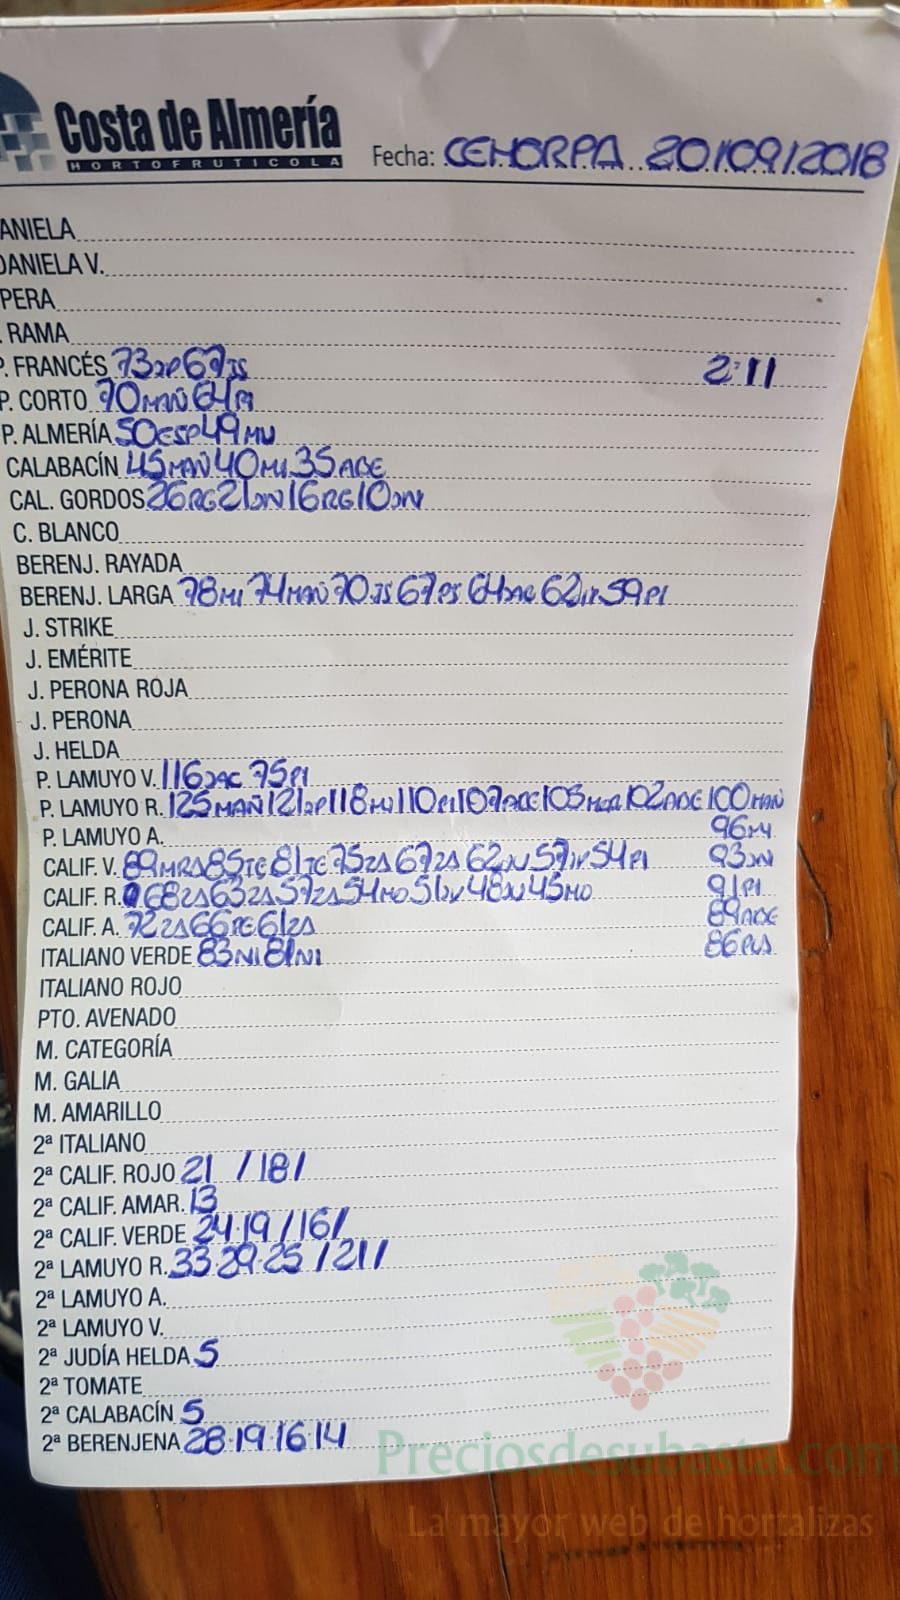 Costa de Almería
HORTOFRUTICOLA
Fecha: CEHORPA 20/09/2018
ANIELA
DANIELA V.
PERA
RAMA
P. FRANCÉS 73JP 67JS 2:11
P. CORTO 70MAÑ 64PI
P. ALMERÍA 50ESP 49MU
CALABACÍN 45MAÑ 40MI 35ADE
CAL. GORDOS 26RG 21JN 16RG 10JN
C. BLANCO
BERENJ. RAYADA
BERENJ. LARGA 78MI 74MAÑ 70JS 67PS 64JAC 62 59PI
J. STRIKE
J. EMÉRITE
J. PERONA ROJA
J. PERONA
J. HELDA
P. LAMUYO V. 116JAC 75PI
P. LAMUYO R. 125MAÑ 121JP 118MU 110PI 107ADE 105 102ADE 100MAÑ
P. LAMUYO A. 96MI
CALIF. V. 89 85TE 81TE 75ZA 67ZA 62 57 54PI 93JN
CALIF. R. 68ZA 63ZA 57ZA 54MO 51 48 45MO 91PI
CALIF. A. 72ZA 66TE 61ZA 89ADE
ITALIANO VERDE 83NI 81NI 86
ITALIANO ROJO
PTO. AVENADO
M. CATEGORÍA
M. GALIA
M. AMARILLO
2ª ITALIANO
2ª CALIF. ROJO 21 /18/
2ª CALIF. AMAR. 13
2ª CALIF. VERDE 24·19 /16/
2ª LAMUYO R. 33·29·25 /21/
2ª LAMUYO A.
2ª LAMUYO V.
2ª JUDÍA HELDA 5
2ª TOMATE
2ª CALABACÍN 5
2ª BERENJENA 28·19·16·14
Preciosdesubasta.com
La mayor web de hortalizas